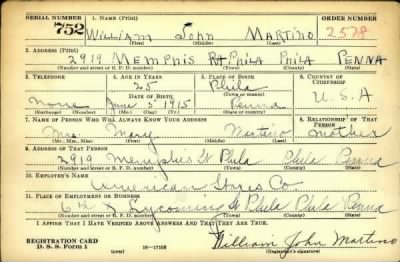 SERIAL NUMBER 1. NAME (Print) ORDER NUMBER
752 WILLIAM JOHN MARTINO 2578
(First) (Middle) (Last)
2. ADDRESS (Print)
2919 MEMPHIS PHILA PHILA PENNA
(Number and street or R. F. D. number) (Town) (County) (State)
3. TELEPHONE 4. AGE IN YEARS 5. PLACE OF BIRTH 6. COUNTRY OF CITIZENSHIP
25 Phila
DATE OF BIRTH (Town or county)
None June 5 1915 Penna U.S.A
(Exchange) (Number) (Mo.) (Day) (Yr.) (State or country)
7. NAME OF PERSON WHO WILL ALWAYS KNOW YOUR ADDRESS 8. RELATIONSHIP OF THAT PERSON
Mrs. Mary Martino mother
(Mr., Mrs., Miss) (First) (Middle) (Last)
9. ADDRESS OF THAT PERSON
2919 Memphis St Phila Phila Penna
(Number and street or R. F. D. number) (Town) (County) (State)
10. EMPLOYER'S NAME
American Stores Co
11. PLACE OF EMPLOYMENT OR BUSINESS
6th & Lycoming St Phila Phila Penna
(Number and street or R. F. D. number) (Town) (County) (State)
I AFFIRM THAT I HAVE VERIFIED ABOVE ANSWERS AND THAT THEY ARE TRUE.
REGISTRATION CARD
D. S. S. Form 1 (over) 16—17105 William John Martino
(Registrant's signature)